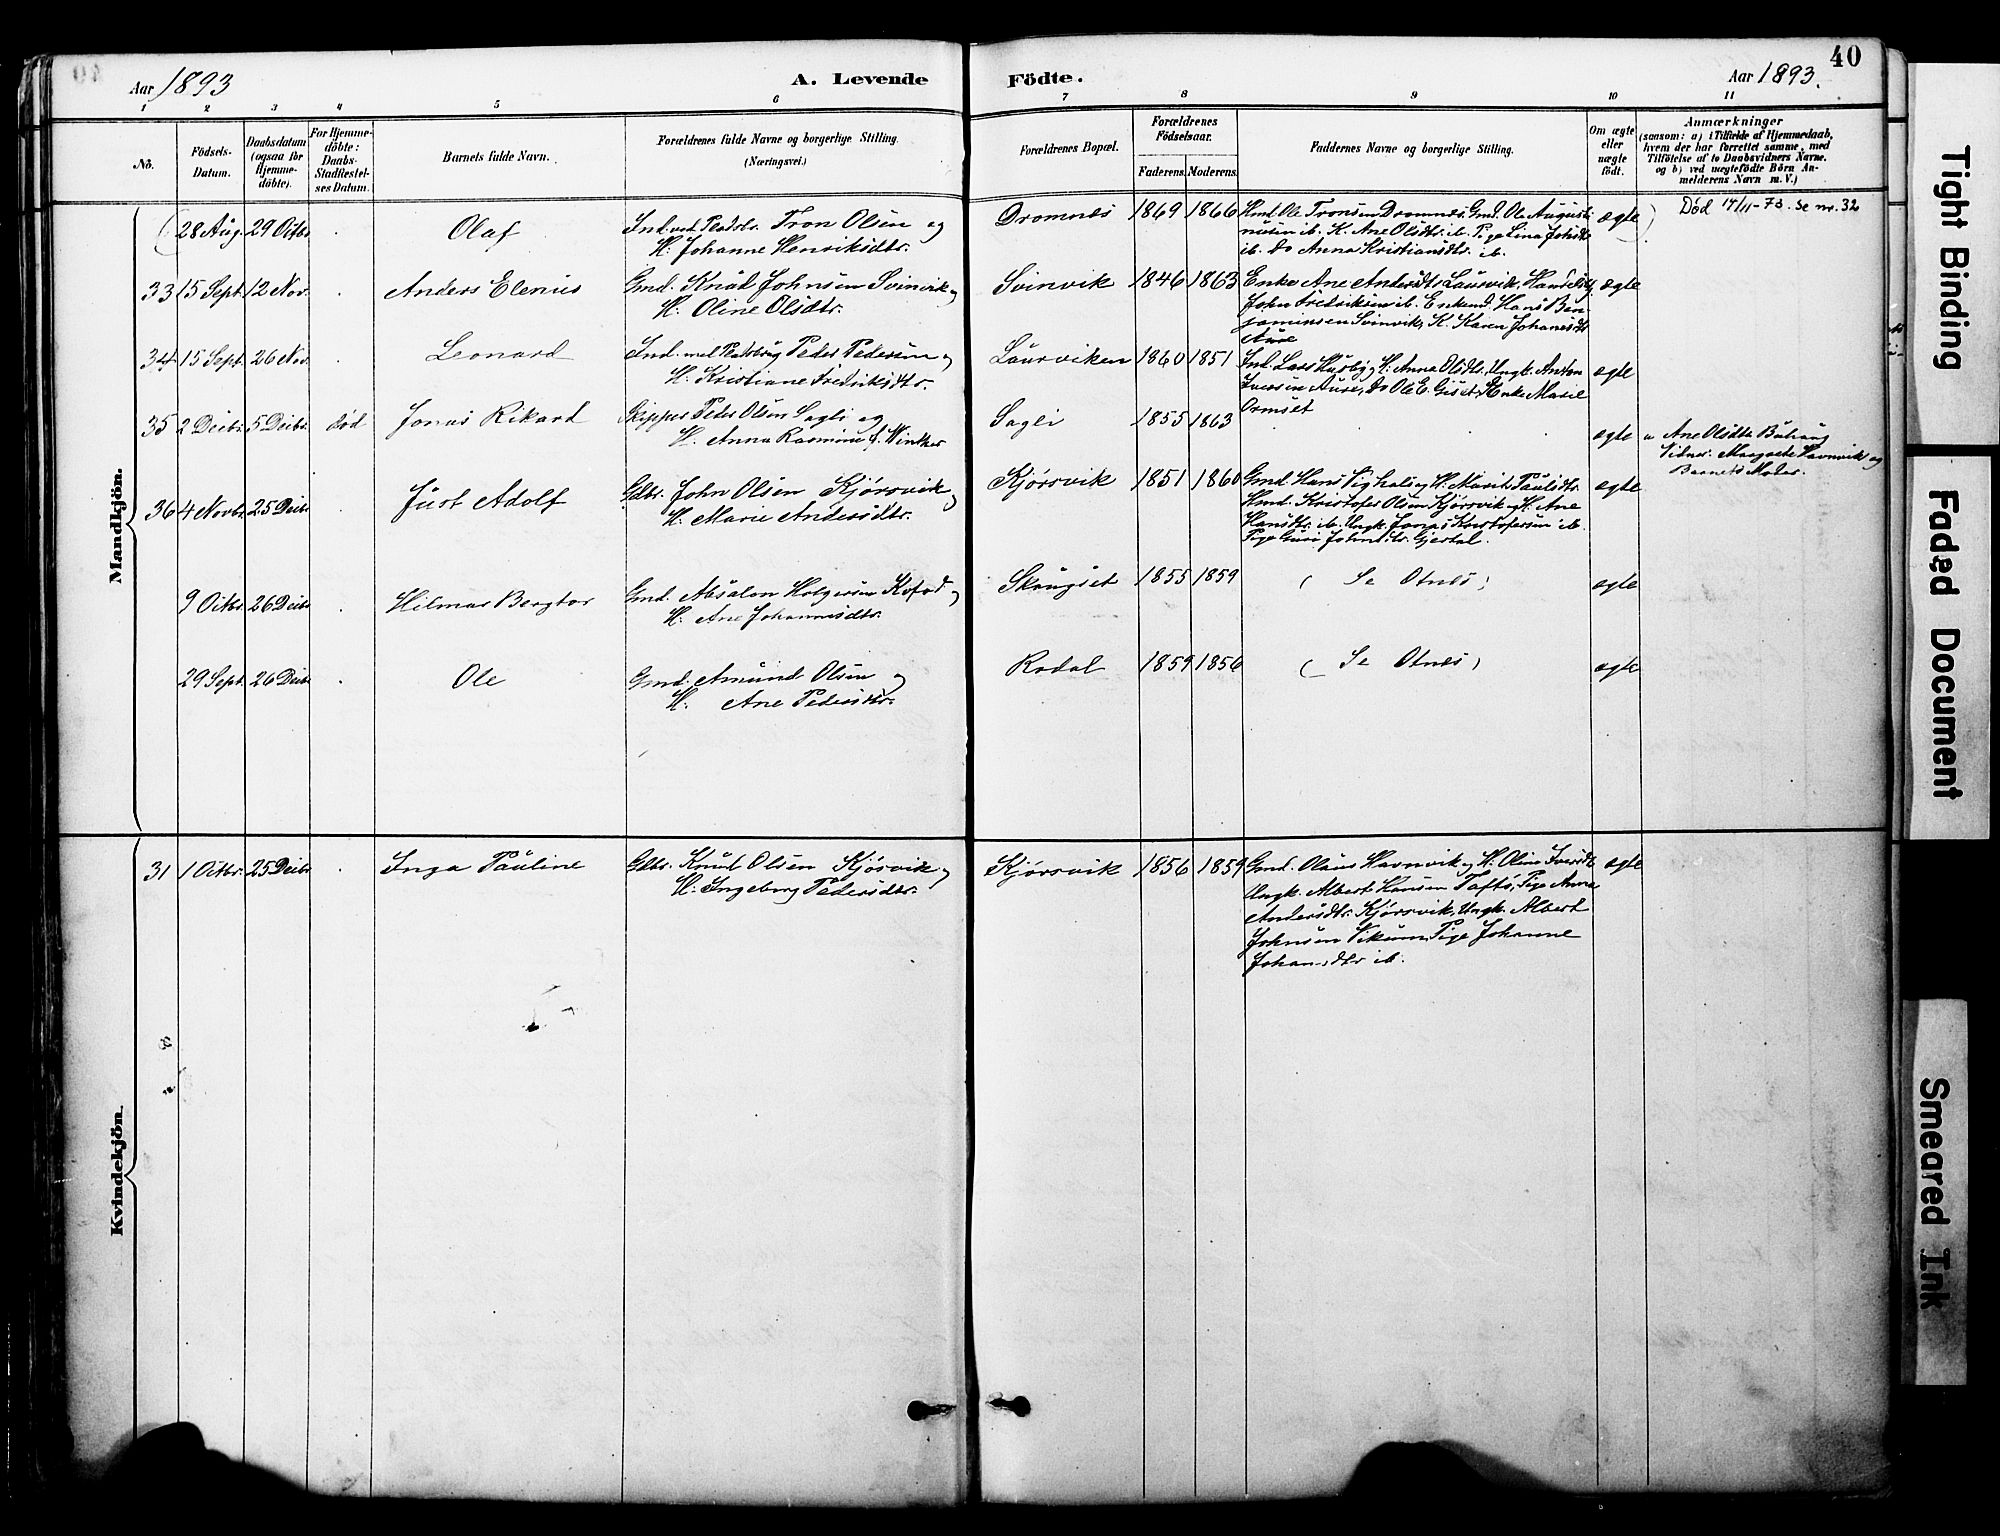 40
Aar 1893
A. Levende
Födte.
Aar 1893.
1 2 3 4 5 6 7 8 9 10 11
No.
Födsels-
Datum.
Daabsdatum
(ogsaa for
Hjemme-
döbte).
For Hjemme-
döbte:
Daabs-
Stadfæstel-
ses Datum.
Barnets fulde Navn.
Forældrenes fulde Navne og borgerlige Stilling.
(Næringsvei.)
Forældrenes Bopæl.
Forældrenes
Födselsaar.
Faderens.
Moderens.
Faddernes Navne og borgerlige Stilling.
Om ægte
eller
uægte
födt.
Anmærkninger
(saasom: a) i Tilfælde af Hjemmedaab,
hvem der har forrettet samme, med
Tilföielse af to Daabsvidners Navne,
og b) ved uægtefödte Börn An-
melderens Navn m. V.)
Mandkjön.
(28 Aug. 29 Octbr. Olaf
Ind. ved Pladsbr. Tron Olsen og
H. Johanne Henriksdtr.
Dromnæs 1869 1866
Hmd. Ole Tronsen Dromnæs, Gmd. Ole Augusti
nusen ib. K. Ane Olsdtr. ib. Pige Lina Johsdtr
ib. do Anna Kristiansdtr. ib.
ægte )
Død 17/11-73. se nr. 32
33 15 Sept. 12 Nov. Anders Elenius
Gmd. Knud Johnsen Svinvik og
H. Oline Olsdtr.
Svinvik 1846 1863
Enke Ane Andersdtr Laurvik, Handelsbtj.
John Fredriksen ib. Enkemd. Hans Ben
jaminsen Svinvik, K. Karen Johanesdtr
Aure
ægte
34 15 Sept. 26 Nov. Leonard
Ind. med Pladsbrug Peder Pedersen og
H. Kristiane Fredriksdtr.
Laurviken 1860 1851
Ind. Lars Husby og H. Anna Olsdtr. Ungk. Anton
Iversen Aure, do Ole E. Giset, Enke Marie
Ormset
ægte
35 2 Decbr. 5 Decbr. død Jonas Rikard
Skipper Peder Olsen Sagli og
H. Anna Rasmine f. Winther
Sagli 1855 1863
ægte
a Ane Olsdtr
Vidner. Margrete Havnvik og
Barnets Moder.
36 4 Novbr. 25 Decbr. Just Adolf
Gdbr. John Olsen Kjørsvik og
H. Marie Andersdtr.
Kjørsvik 1851 1860
Gmd. Hans og H. Marit Paulsdtr.
Hmd. Kristofer Olsen Kjørsvik og H. Ane
Hansdtr. ib. Ungk. Jonas Kristofersen ib.
Pige Guri Johnsdtr. Gjerdal.
ægte
9 Octbr. 26 Decbr. Hilmar Bergtor
Gmd. Absalon Holgersen Kofod og
H. Ane Johannesdtr.
Skougset 1855 1859
( Se Otnes )
ægte
29 Sept. 26 Decbr. Ole
Gmd. Amund Olsen og
H. Ane Pedersdtr.
Rodal 1859 1856
( Se Otnes )
ægte
Kvindekjön.
31 1 Octbr. 25 Decbr. Inga Pauline
Gdbr. Knud Olsen Kjørsvik og
H. Ingeborg Pedersdtr.
Kjørsvik 1856 1859
Gmd. Olaus Havnvik og H. Oline Iversdtr.
Ungk. Albert Hansen Tafts, Pige Anna
Andersdtr. Kjørsvik, Ungk. Albert
Johnsen Vikum, Pige Johanne
Johansdtr ib.
ægte
Tight Binding
Faded Document
Smeared Ink